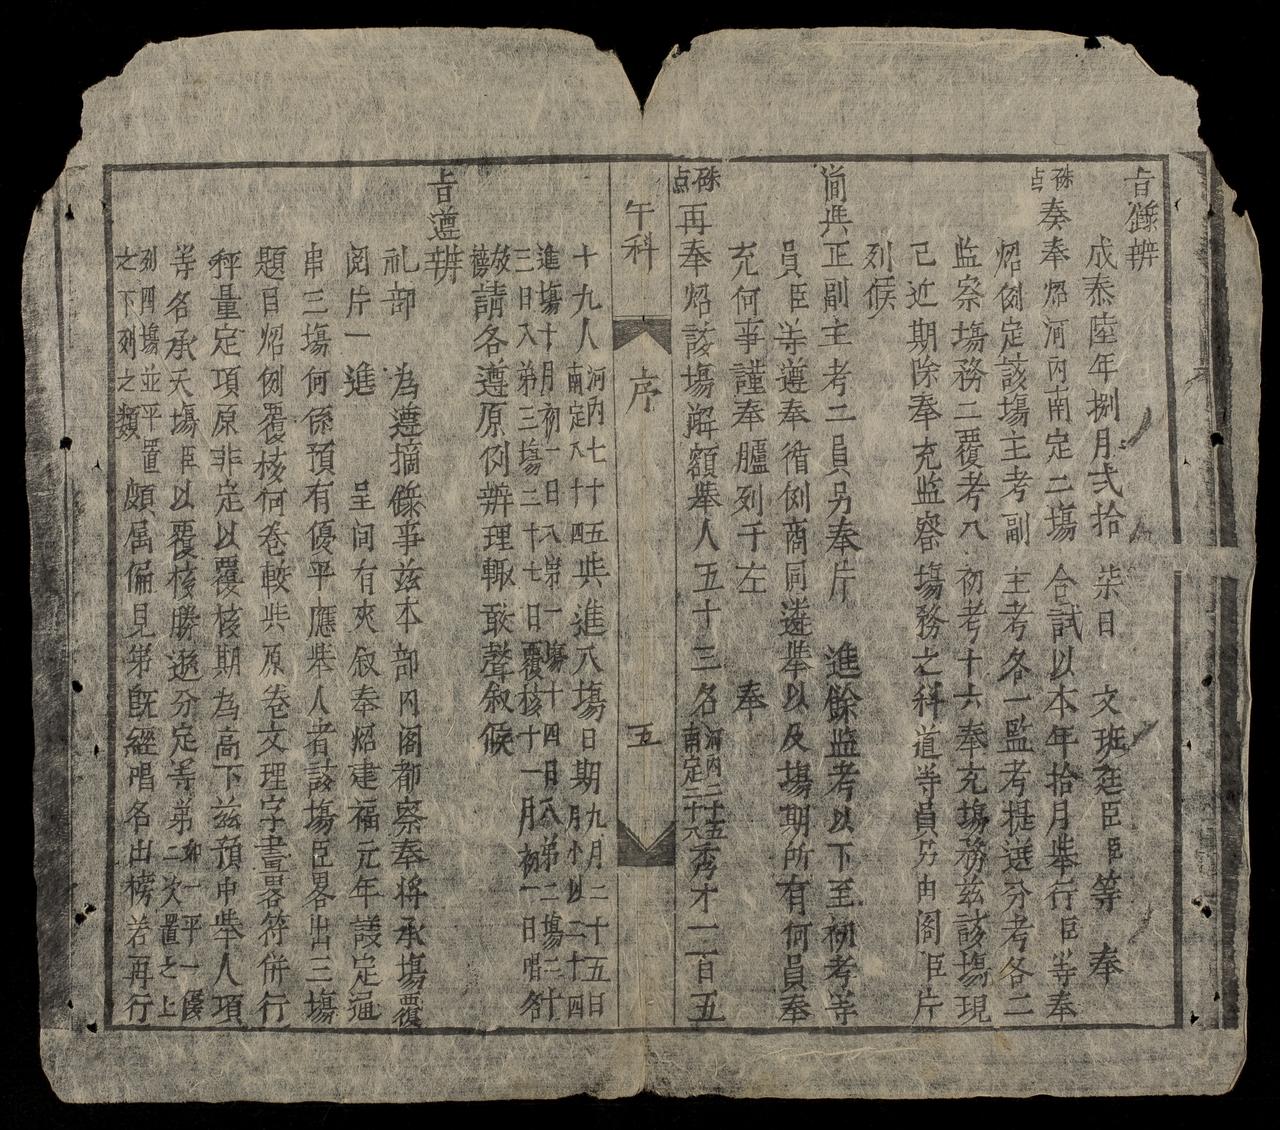 旨錄辨
成泰陸年捌月弍拾柒日 文班廷臣臣等 奉
硃点 奏奉炤河内南定二場 合試以本年拾月舉行臣等奉
炤例定該場主考副主考各一監考提選分考各二
監察場務二覆考八初考十六奉充場務兹該場現
已近期除奉充監察場務之科道等員另由阁臣片
列候
簡與正副主考二員另奉片 進餘監考以下至初考等
員臣等遵奉循例商同遴舉以及場期所有何員奉
充何事謹奉臚列于左 奉
硃点 再奉炤該場解額舉人五十三名河内二十五南定二十八秀才一百五
午科 序 五
十九人河内七十五南定八十四與進八場日期九月二十五日月小以二十四
進場十月初一日入第一場十四日入第二場二十
三日入第三場三十七日覆核十一月初一日唱名
放榜請各遵原例辨理輙敢聲叙候
旨遵辨
礼部 為遵摘錄事兹本部内阁都察奉將承場覆
阅片一進 呈间有夾叙奉炤建福元年議定逼
串三場何係預有優平應舉人者該場臣畧出三場
題目炤例覆核何卷較與原卷文理字畫畧符併行
秤量定項原非定以覆核期為高下兹預中舉人項
等名承天場臣以覆核勝遜分定等第如一平一優二次置之上
列四場並平置之下列之類頗属偏見第既經唱名出榜若再行